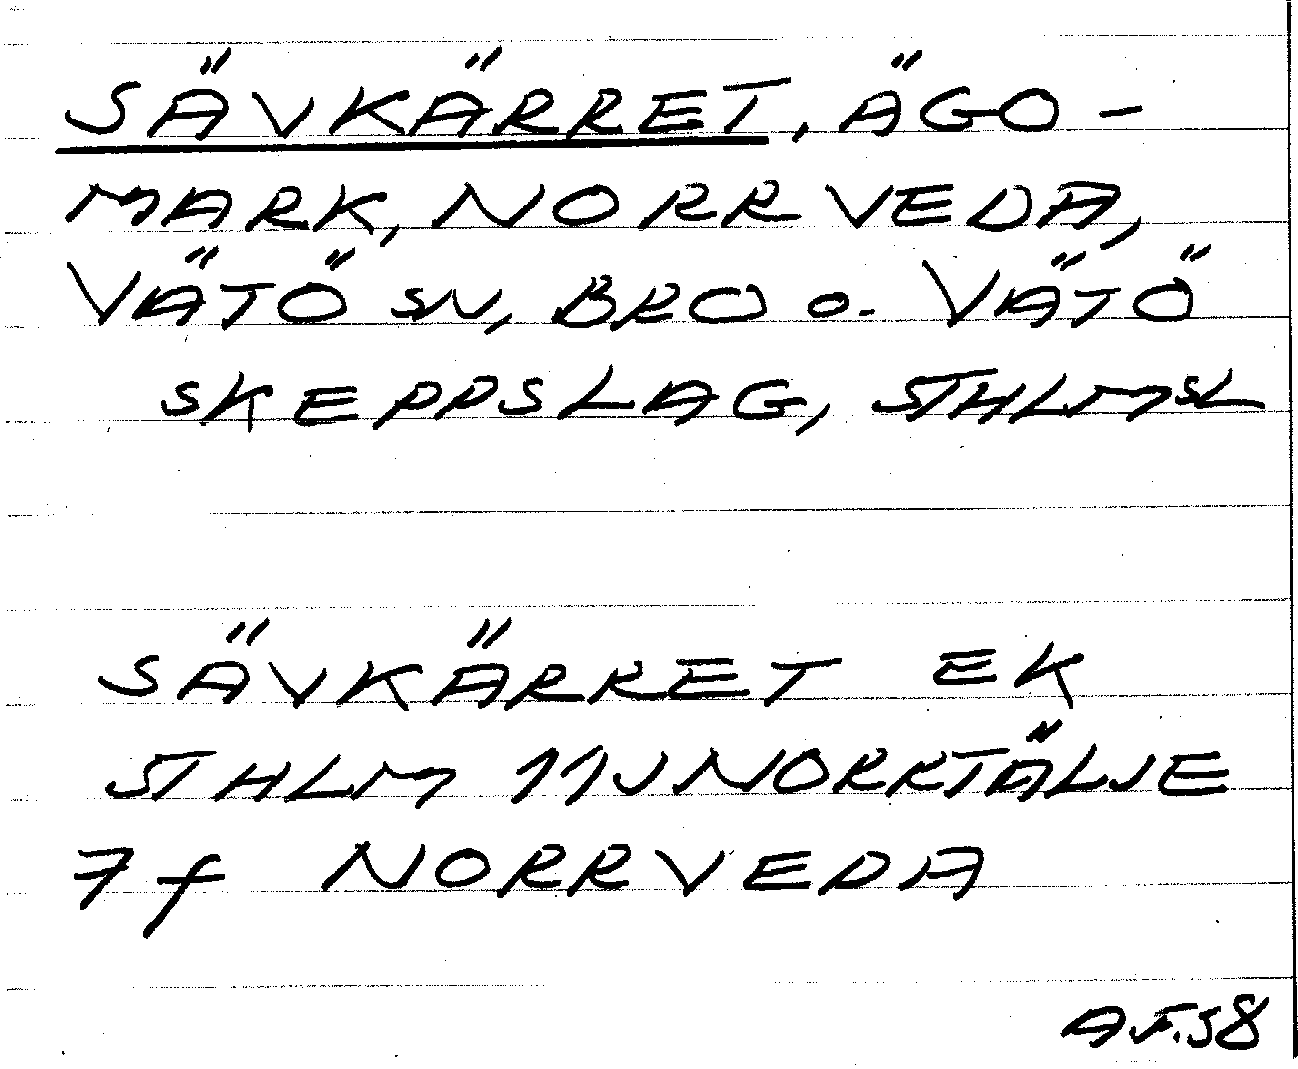 SÄVKÄRRET, ÄGO-
MARK, NORRVEDA,
VÄTÖ SN, BRO O. VÄTÖ
SKEPPSLAG, STHLMSL
SÄVKÄRRET EK
STHLM 11J NORRTÄLJE
7f NORRVEDA
A.F.58